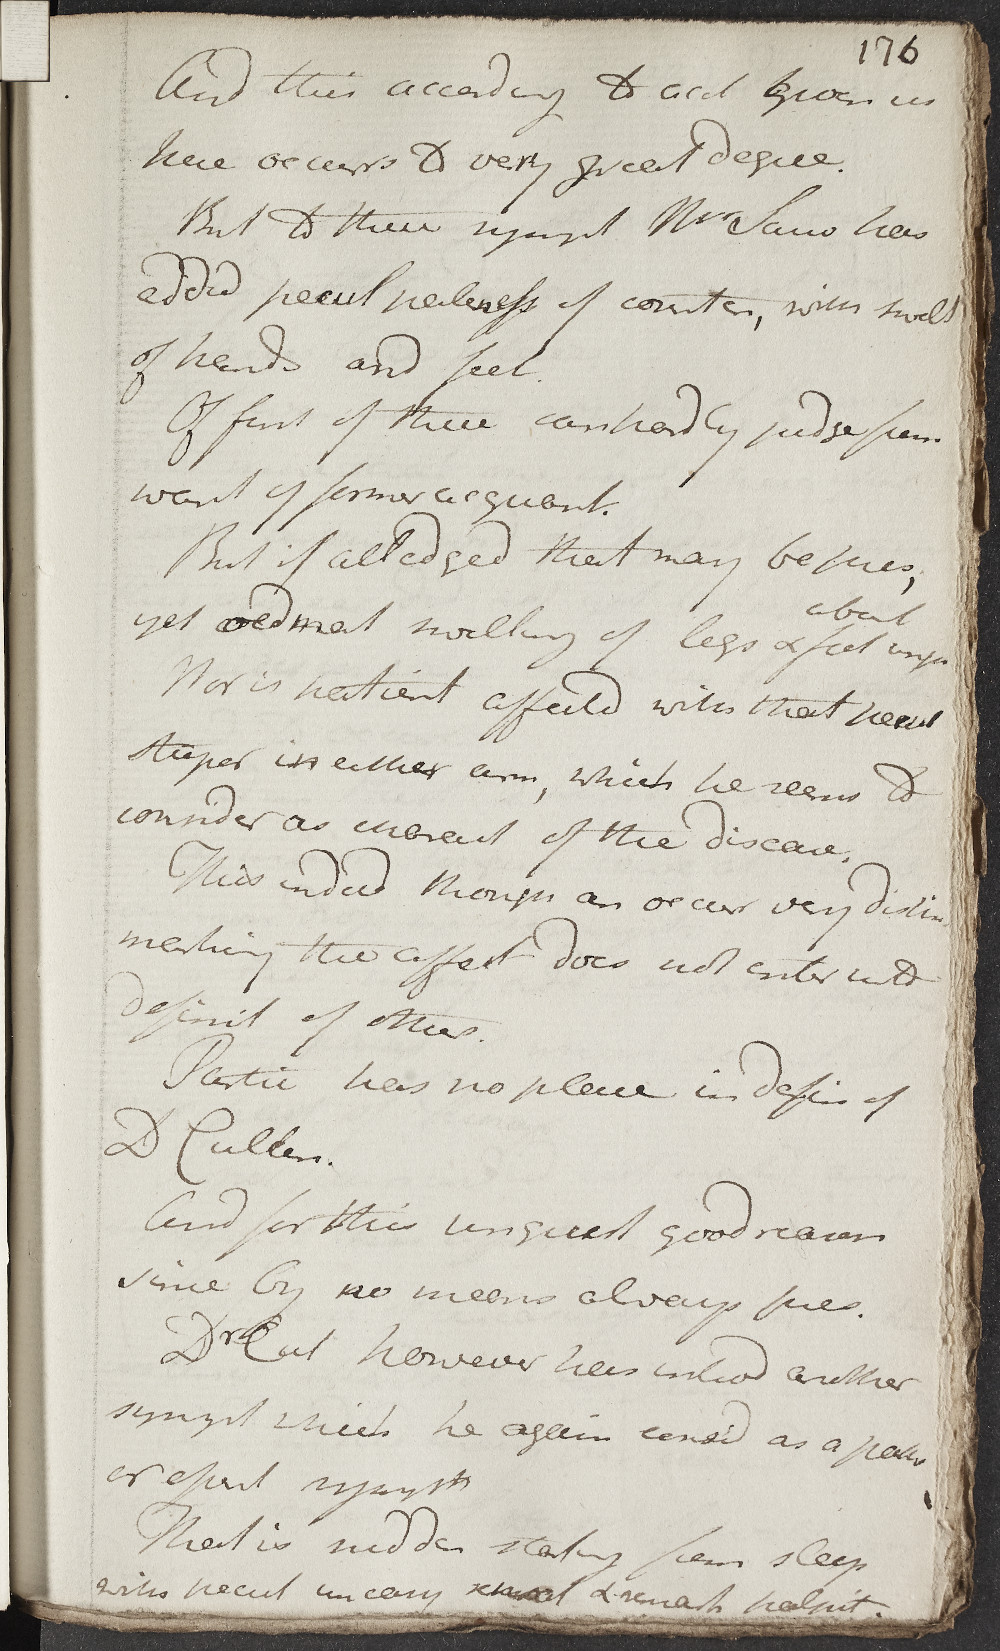 176
And this according to acct given us
here occurs to very great degree.
But to these sympt Mr Sauv has
added pecul paleness of counten, with swell
of hands and feet.
Of first of these can hardly judge from
want of former acquaint.
But if alledged that may be pres,
yet oedemat swelling of legs & feet about
Nor is patient affected with that pecul
stupor in either arm, which he seems to
consider as charact of the disease.
This indeed though an occur very distin
marking the affect does not enter into
definit of others.
Partic has no place in defin of
D Cullen.
And for this unquest good reason
since by no means always pres.
Dr Cul however has introd another
sympt which he again consid as a
or essent sympt
That is sudden starting from sleep
with pecul uneasy & palpit.